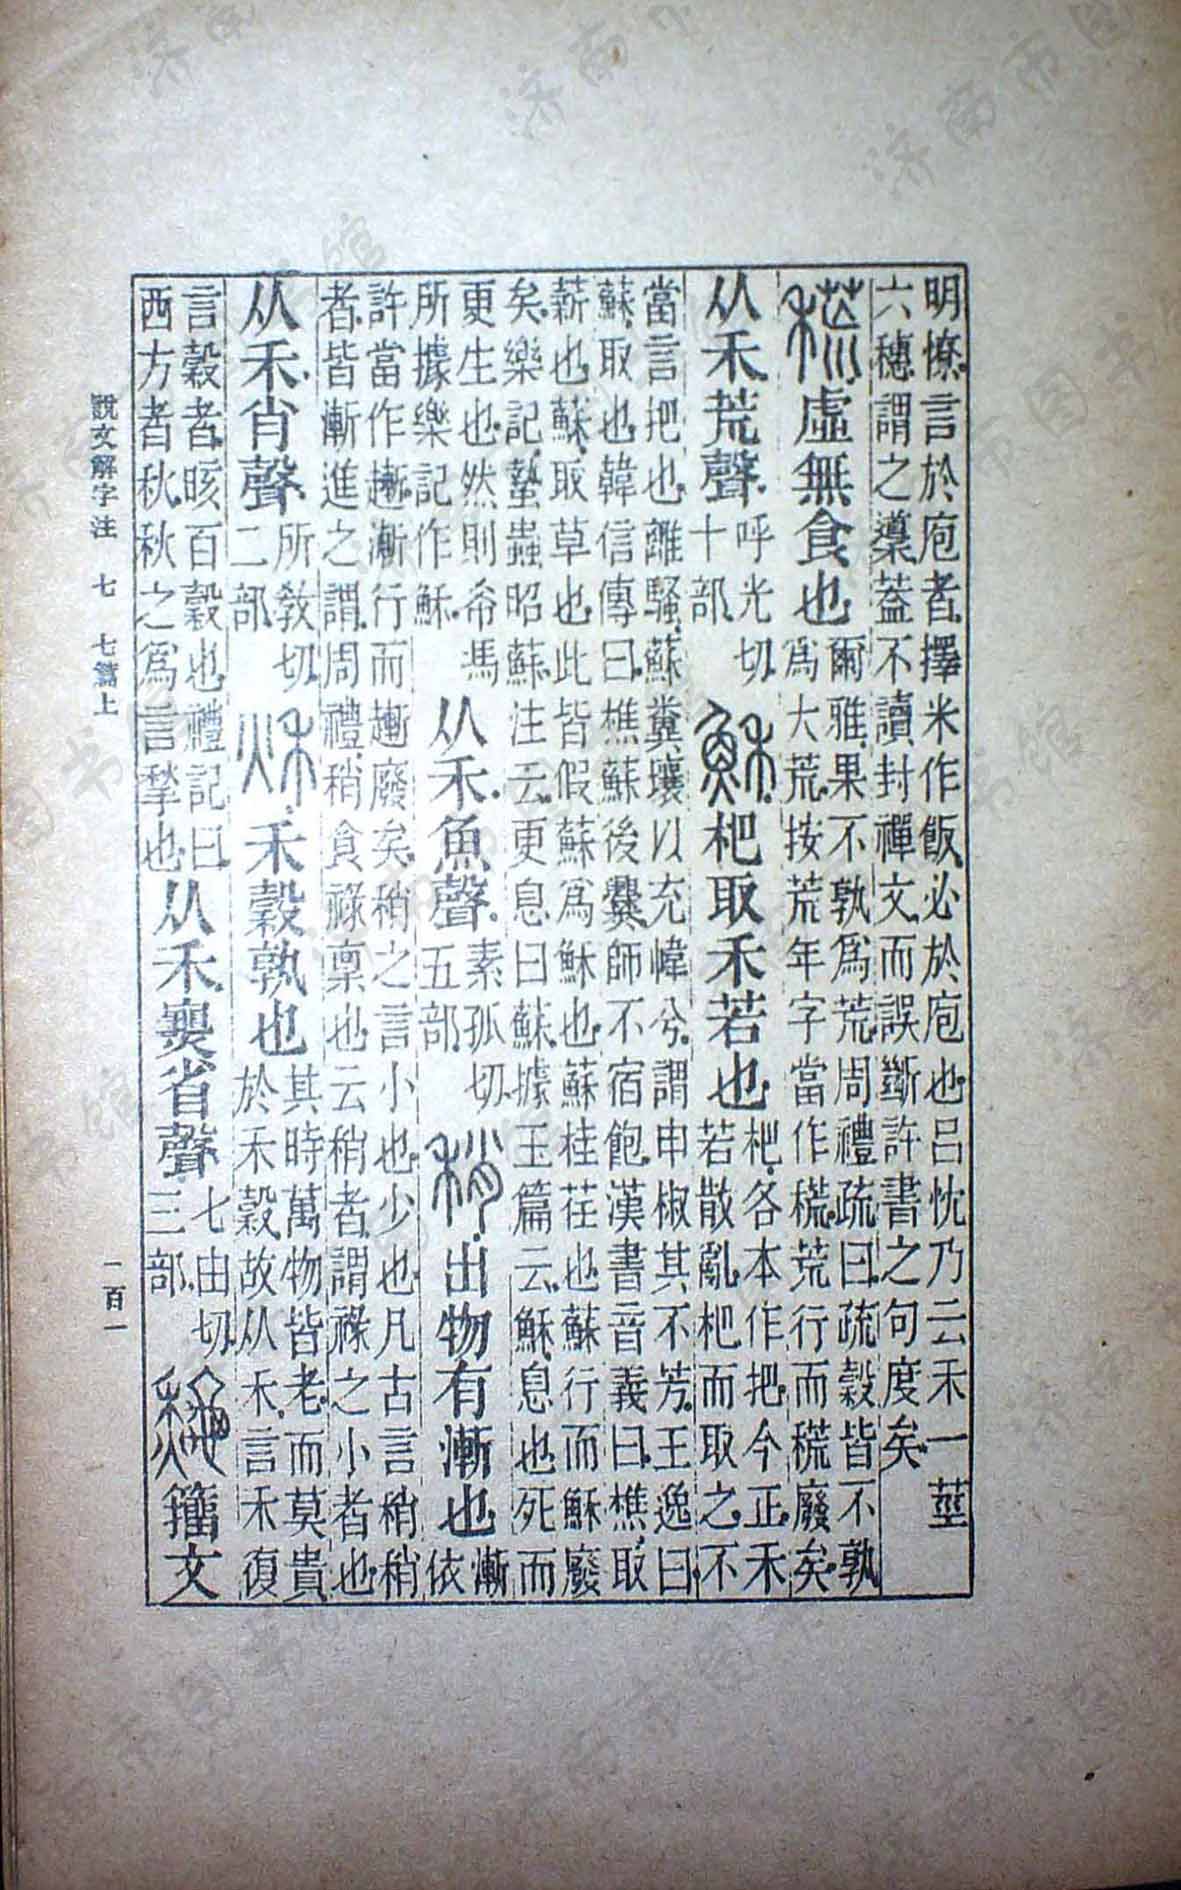 明憭。言於庖者。擇米作飯。必於庖也。呂忱乃云禾一莖
六穗。謂之䆃。蓋不讀封禪文。而誤斷許書之句度矣。
䅣虛無食也
爾雅。果不孰爲荒。周禮疏曰。疏穀皆不孰
爲大荒。按荒年字當作䅣。荒行而䅣廢矣。
从禾。荒聲。
呼光切。
十部。
穌。杷取禾若也。
杷。各本作把。今正。禾
若散亂。杷而取之。不
當言把也。離騷。蘇糞壤以充幃兮。謂申椒其不芳。王逸曰。
蘇。取也。韓信傳曰。樵蘇後爨。師不宿飽。漢書音義曰。樵。取
薪也。蘇。取草也。此皆假蘇爲穌也。蘇。桂荏也。蘇行而穌廢
矣。樂記。蟄蟲昭蘇。注云。更息曰蘇。據玉篇云。穌。息也。死而
更生也。然則希馮
所據樂記作穌。
从禾。魚聲。
素孤切。
五部。
稍。出物有漸也。
漸
依
許當作𧽯。漸行而𧽯廢矣。稍之言小也。少也。凡古言稍稍
者。皆漸進之謂。周禮。稍食。祿稟也。云稍者。謂祿之小者也。
从禾。肖聲。
所教切。
二部。
秌。禾穀孰也。
其時萬物皆老。而莫貴
於禾穀。故从禾。言禾復
言穀者。晐百穀也。禮記曰。
西方者秋。秋之爲言揫也。
从禾。𤒅省聲。
七由切。
三部。
籒文
說文解字注 七 七篇上
一百一